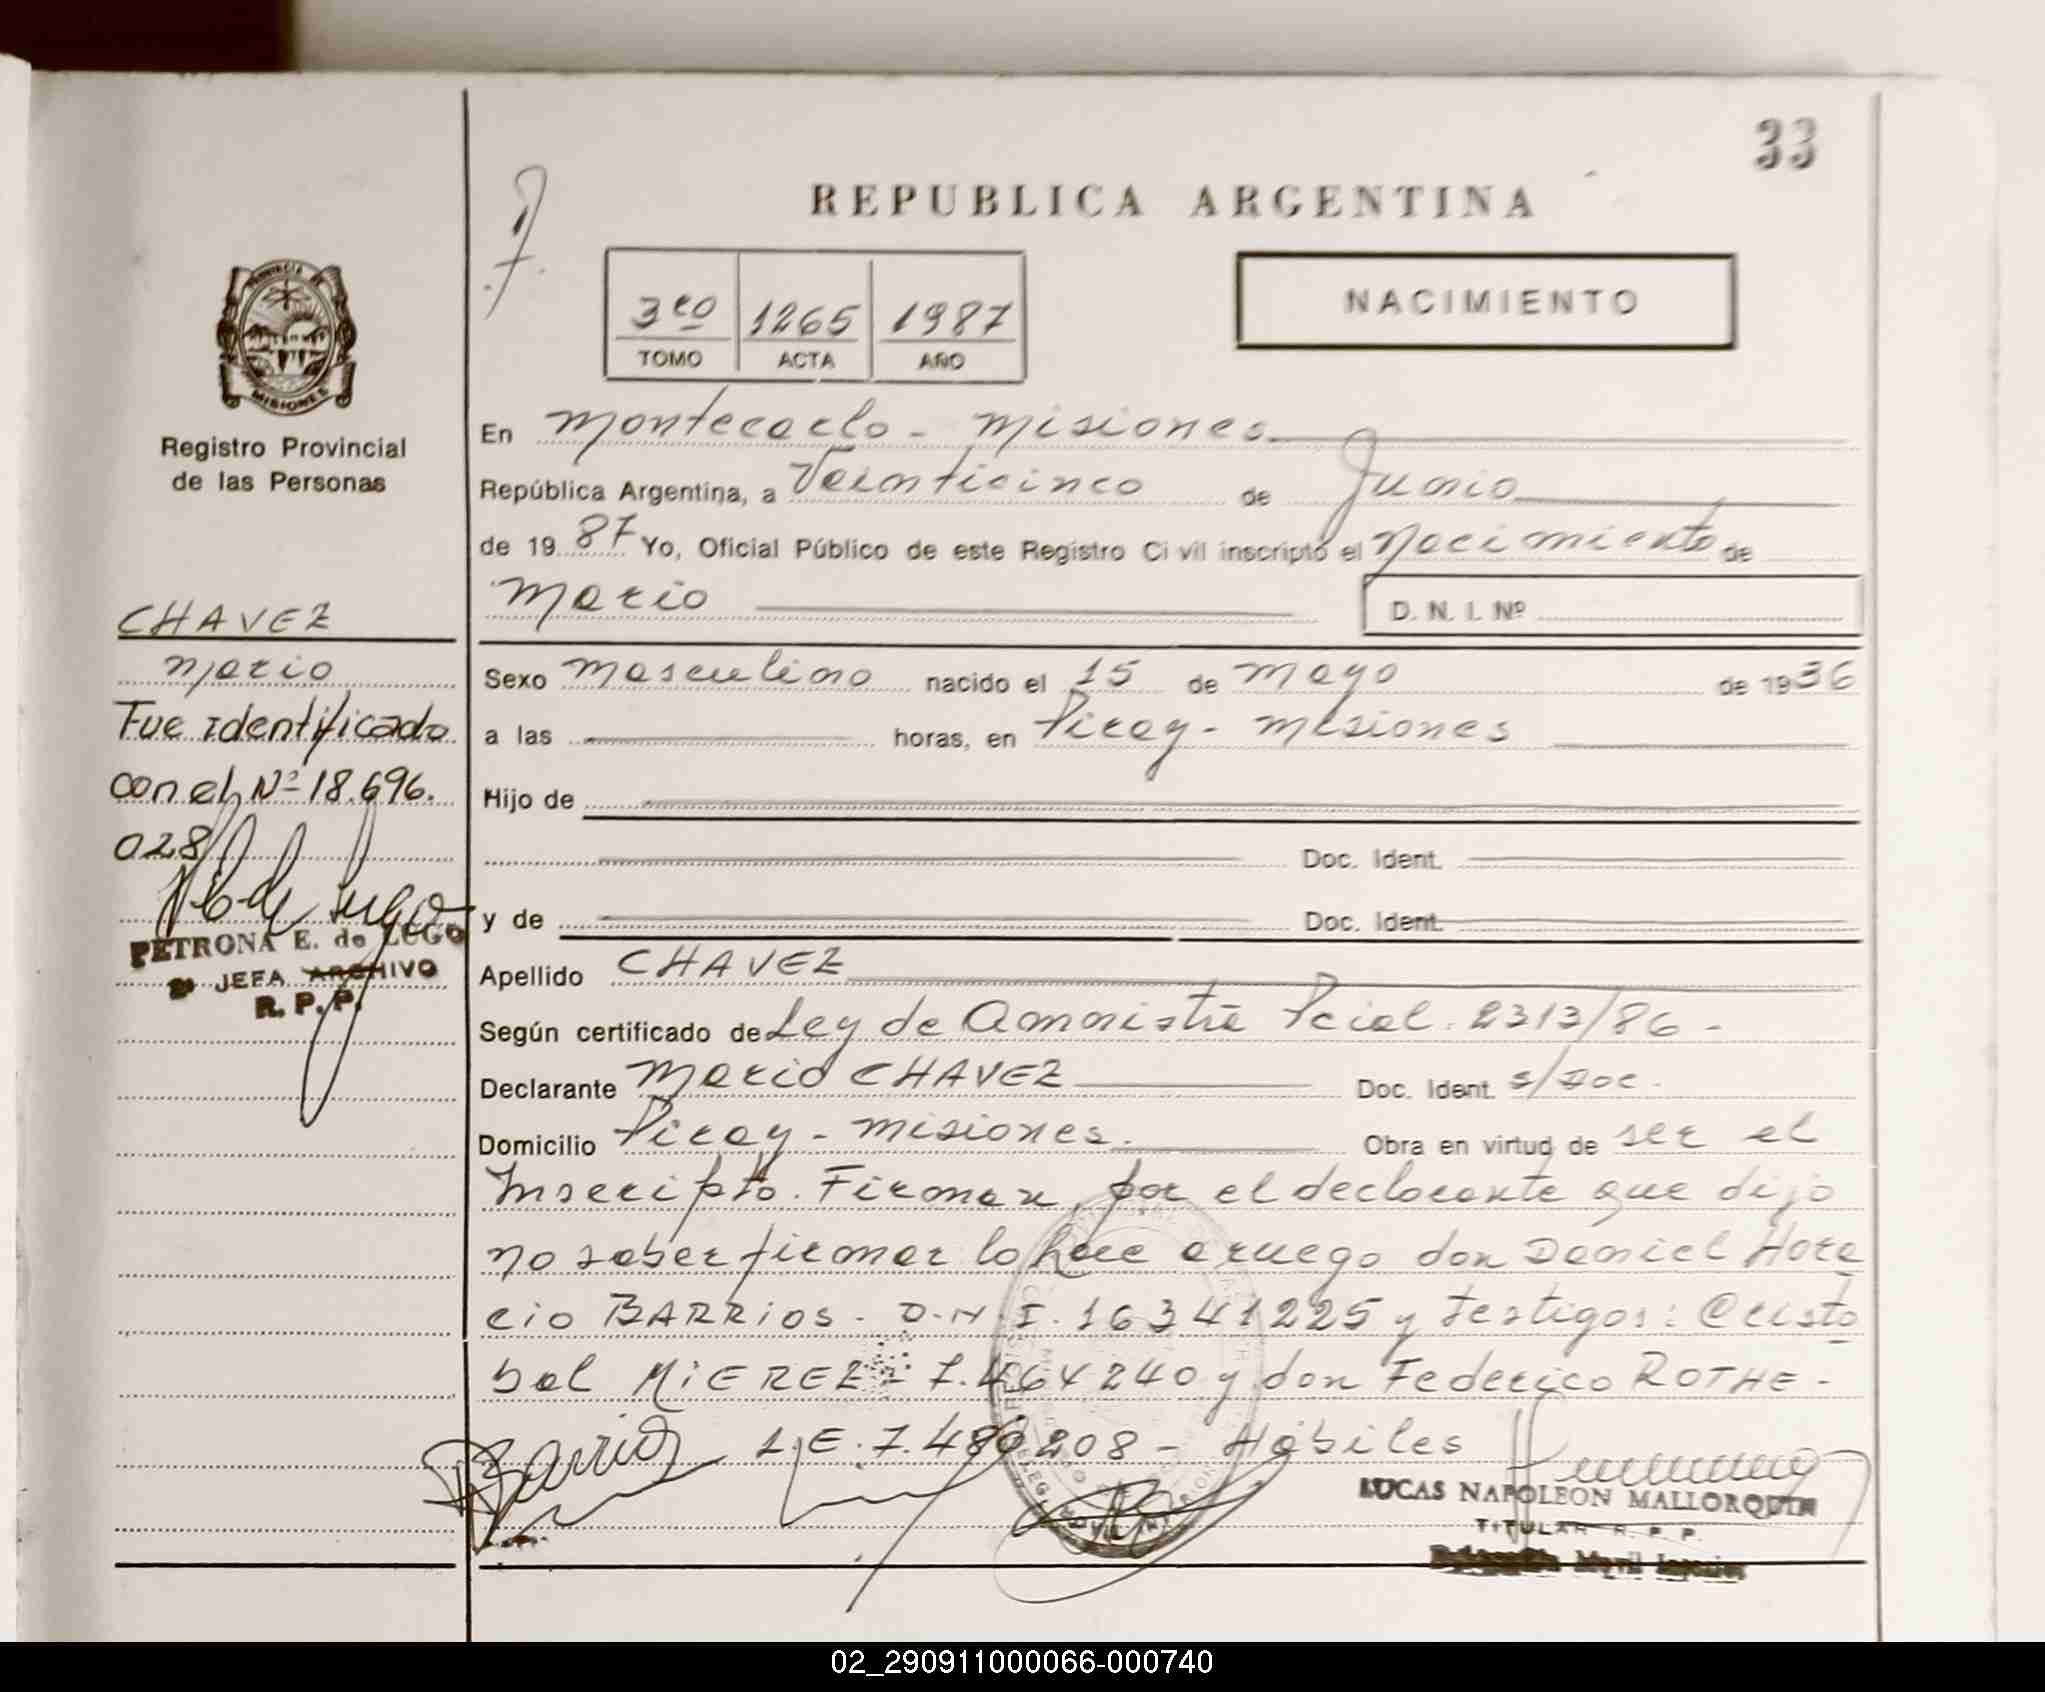 33
REPUBLICA ARGENTINA
3ro 1265 1987
TOMO ACTA AÑO
NACIMIENTO
MISIONES
Registro Provincial
de las Personas
CHAVEZ
Mario
Fue identificado
con el Nº 18.696.
028
PETRONA E. de LUGO
2ª JEFA ARCHIVO
R. P. P.
En Montecarlo - Misiones
República Argentina, a Veinticinco de Junio
de 19 87 Yo, Oficial Público de este Registro Civil inscripto el Nacimiento de
Mario D. N. I. Nº
Sexo Masculino nacido el 15 de Mayo de 1936
a las horas, en Piray - Misiones
Hijo de
Doc. Ident.
y de Doc. Ident.
Apellido CHAVEZ
Según certificado de Ley de Amnistia Pcial. 2313/86 -
Declarante Mario CHAVEZ Doc. Ident. s/Doc.
Domicilio Piray - Misiones. Obra en virtud de ser el
Inscripto. Firman, por el declarante que dijo
no saber firmar lo hace a ruego don Daniel Hora
cio BARRIOS - D.N.I. 16341225 y testigos: Cristo
bal MIEREZ - 7.464240 y don Federico ROTHE -
L.E. 7.480208 - Hábiles
Barrios
LUCAS NAPOLEON MALLORQUIN
TITULAR R. P. P.
02_290911000066-000740